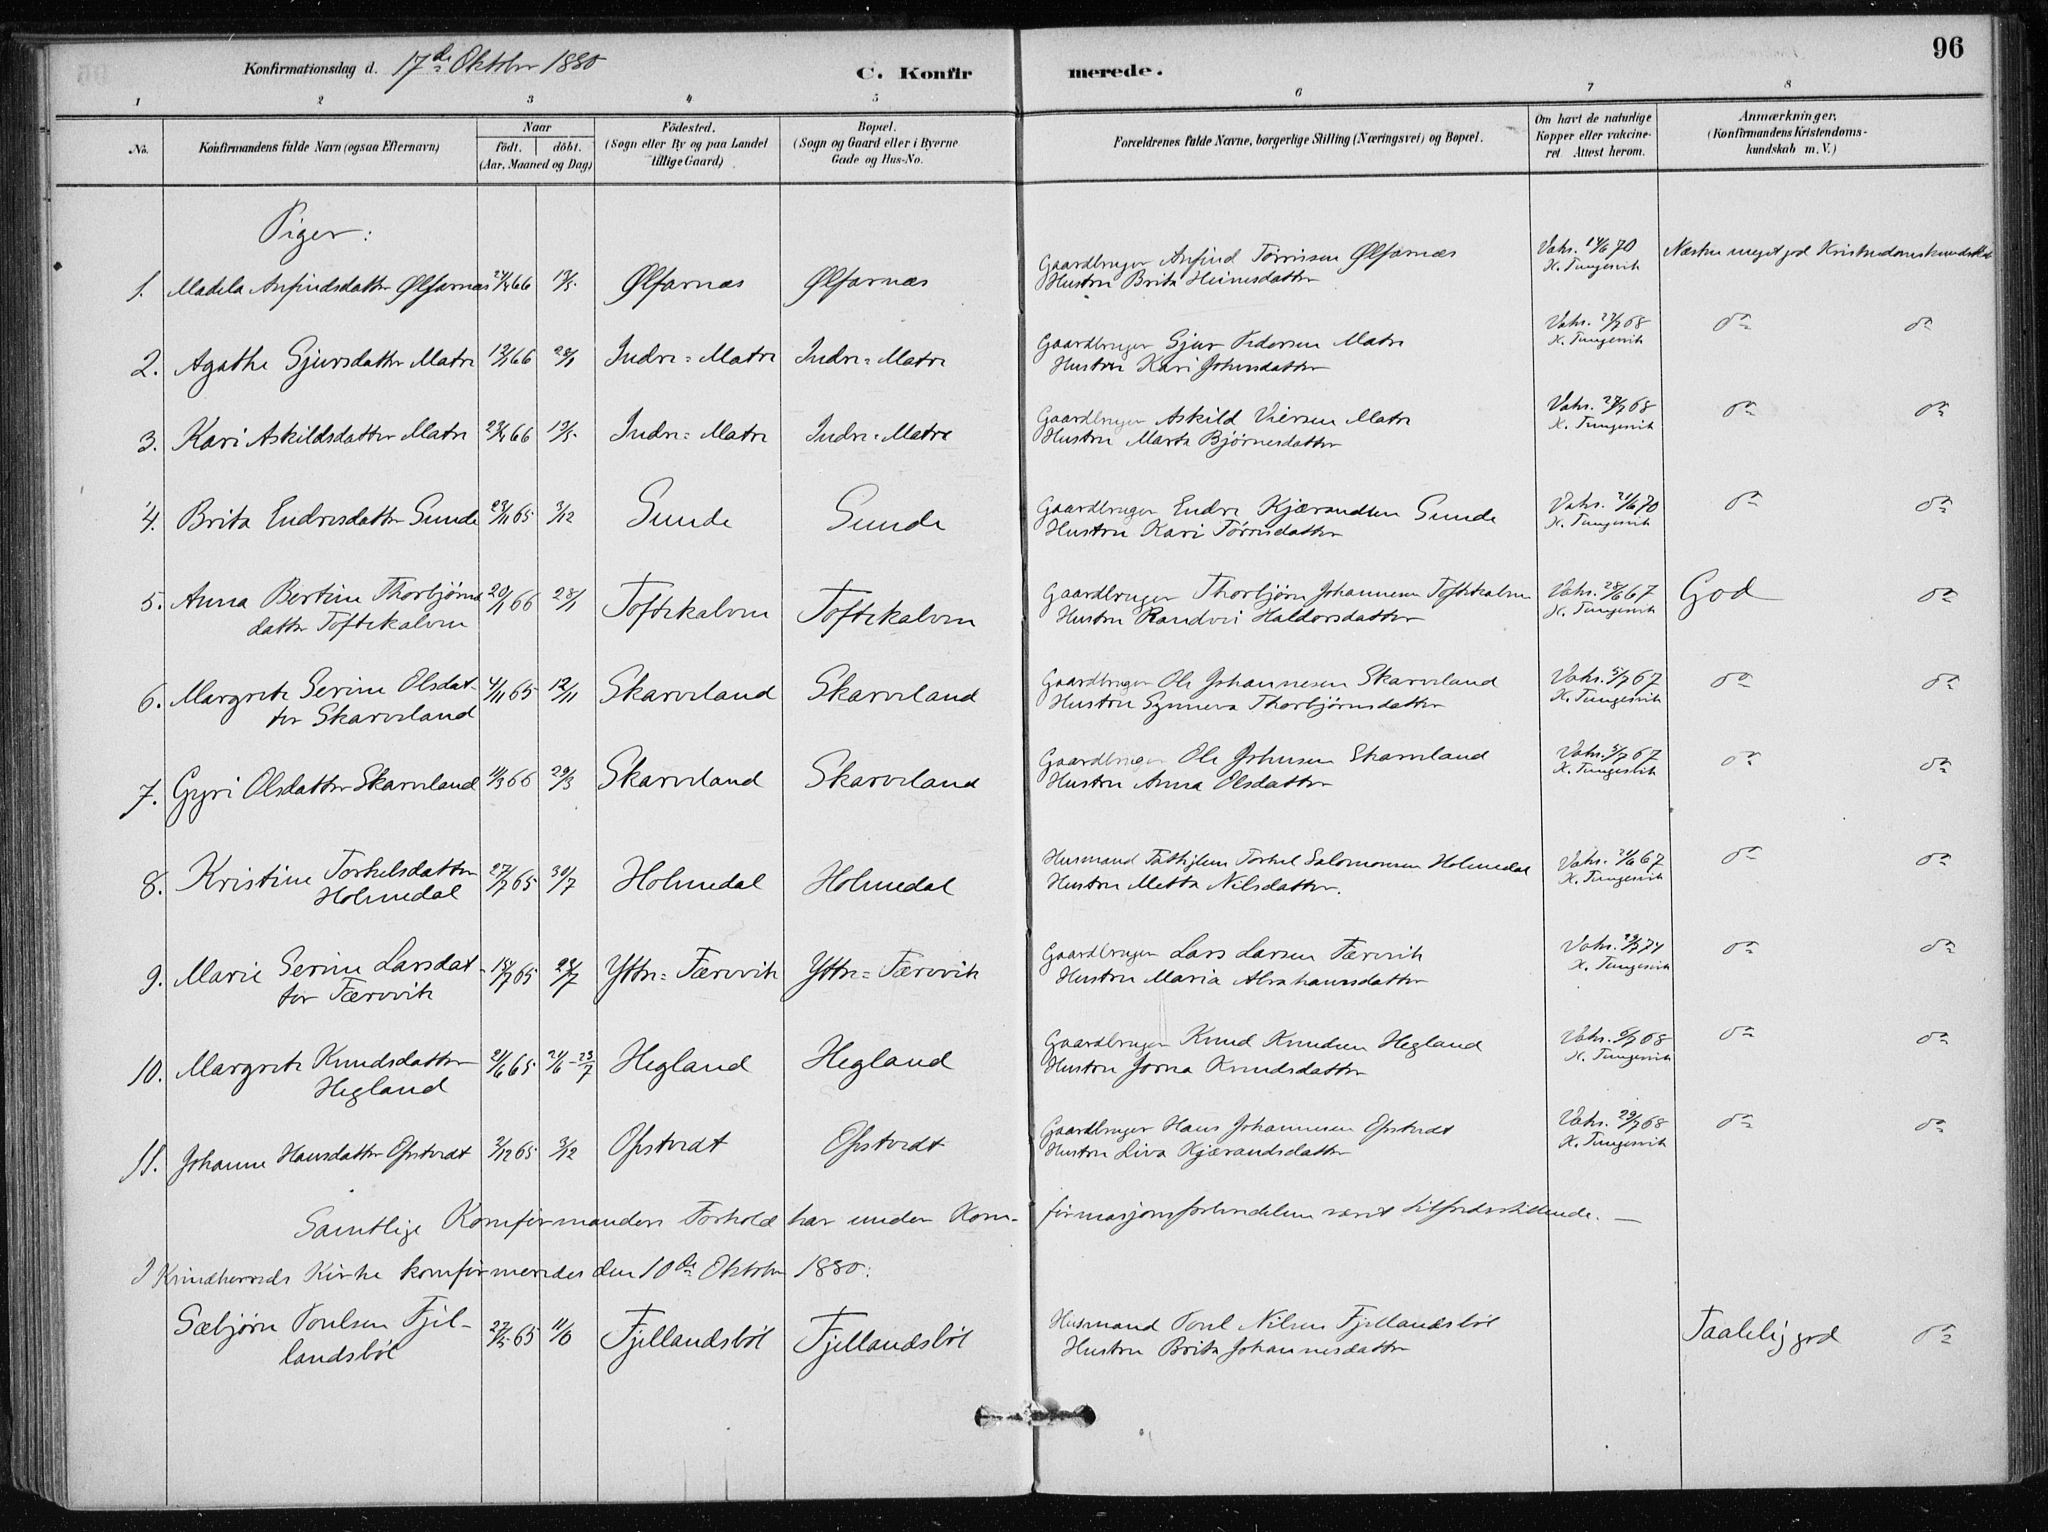 Konfirmationsdag d. 17de Oktober 1880
C. Konfirmerede.
96
1 2 3 4 5 6 7 8
No.
Konfirmandens fulde Navn (ogsaa Efternavn)
Naar
födt. döbt.
(Aar, Maaned og Dag)
Födested.
(Sogn eller By og paa Landet
tillige Gaard)
Bopæl.
(Sogn og Gaard eller i Byerne
Gade og Hus-No.
Forældrenes fulde Navne, borgerlige Stilling (Næringsvei) og Bopæl.
Om havt de naturlige
Kopper eller vakcine-
ret Attest herom.
Anmærkninger.
(Konfirmandens Kristendoms-
kundskab m. V.)
Piger:
1. Madela Anfindsdatter Ølfarnæs 66 Ølfarnæs Ølfarnæs
Gaardbruger Anfind Tørrisen Ølfarnæs
Hustru Brita Heinesdatter
Vakc. 14/6 70
K. Tungesvik
Næsten meget god Kristendomskundskab
2. Agathe Sjursdatter Matre 66 Indre=Matre Indre=Matre
Gaardbruger Sjur Pedersen Matre
Hustru Kari Johnsdatter
Vakc. 27/7 68
K. Tungesvik
do do
3. Kari Askildsdatter Matre 66 Indre=Matre Indre=Matre
Gaardbruger Askild Matre
Hustru Marta Bjørnesdatter
Vakc. 68
K. Tungesvik
do do
4. Brita Endresdatter Sunde 23/11 65 3/12 Sunde Sunde
Gaardbruger Endre Kjærandsen Sunde
Hustru Kari Tørresdatter
Vakc. 21/6 70
K. Tungesvik
do do
5. Anna Bertine Thorbjørns
datter Toftekalven
20/1 66 28/1 Toftekalven Toftekalven
Gaardbruger Thorbjørn Johannesen Toftekalven
Hustru Randvei Haldorsdatter
Vakc. 28/6 67
K. Tungesvik
God do
6. Margrete Serine Olsdat-
ter Skarveland
4/11 65 12/11 Skarveland Skarveland
Gaardbruger Ole Johannesen Skarveland
Hustru Synneva Thorbjørnsdatter
Vakc. 5/7 67
K. Tungesvik
do do
7. Gyri Olsdatter Skarveland 66 29/3 Skarveland Skarveland
Gaardbruger Ole Johnsen Skarveland
Hustru Anna Olsdatter
Vakc. 5/7 67
K. Tungesvik
do do
8. Kristine Torkelsdatter
Holmedal
27/7 65 30/7 Holmedal Holmedal
Husmand Torkel Salomonsen Holmedal
Hustru Metta Nilsdatter.
Vakc. 21/6 67
K. Tungesvik
do do
9. Marie Serine Larsdat-
ter Færevik
65 Yttre=Færevik Yttre=Færevik
Gaardbruger Lars Larsen Færevik
Hustru Maria Abrahamsdatter
Vakc. 29/7 74
K. Tungesvik
do do
10. Margrete Knudsdatter
Hegland
21/6 65 24/6-23/7 Hegland Hegland
Gaardbruger Knud Knudsen Hegland
Hustru Jorna Knudsdatter
Vakc. 6/7 68
K. Tungesvik
do do
11. Johanne Hansdatter Opstvedt 2/12 65 3/12 Opstvedt Opstvedt
Gaardbruger Hans Johannesen Opstvedt
Hustru Liva Kjærandsdatter
Vakc. 29/7 68
K. Tungesvik
do do
Samtlige Konfirmanders Forhold har under Kon-firmasjonsforberedelsen været tilfredsstillende. —
I Kvindherreds Kirke konfirmeredes den 10de Oktober 1880:
Sæbjørn Poulsen Fjel-
landsbøl
27/5 65 11/6 Fjellandsbøl Fjellandsbøl
Husmand Poul Nilsen Fjellandsbøl
Hustru Brita Johannesdatter
Taalelig god do